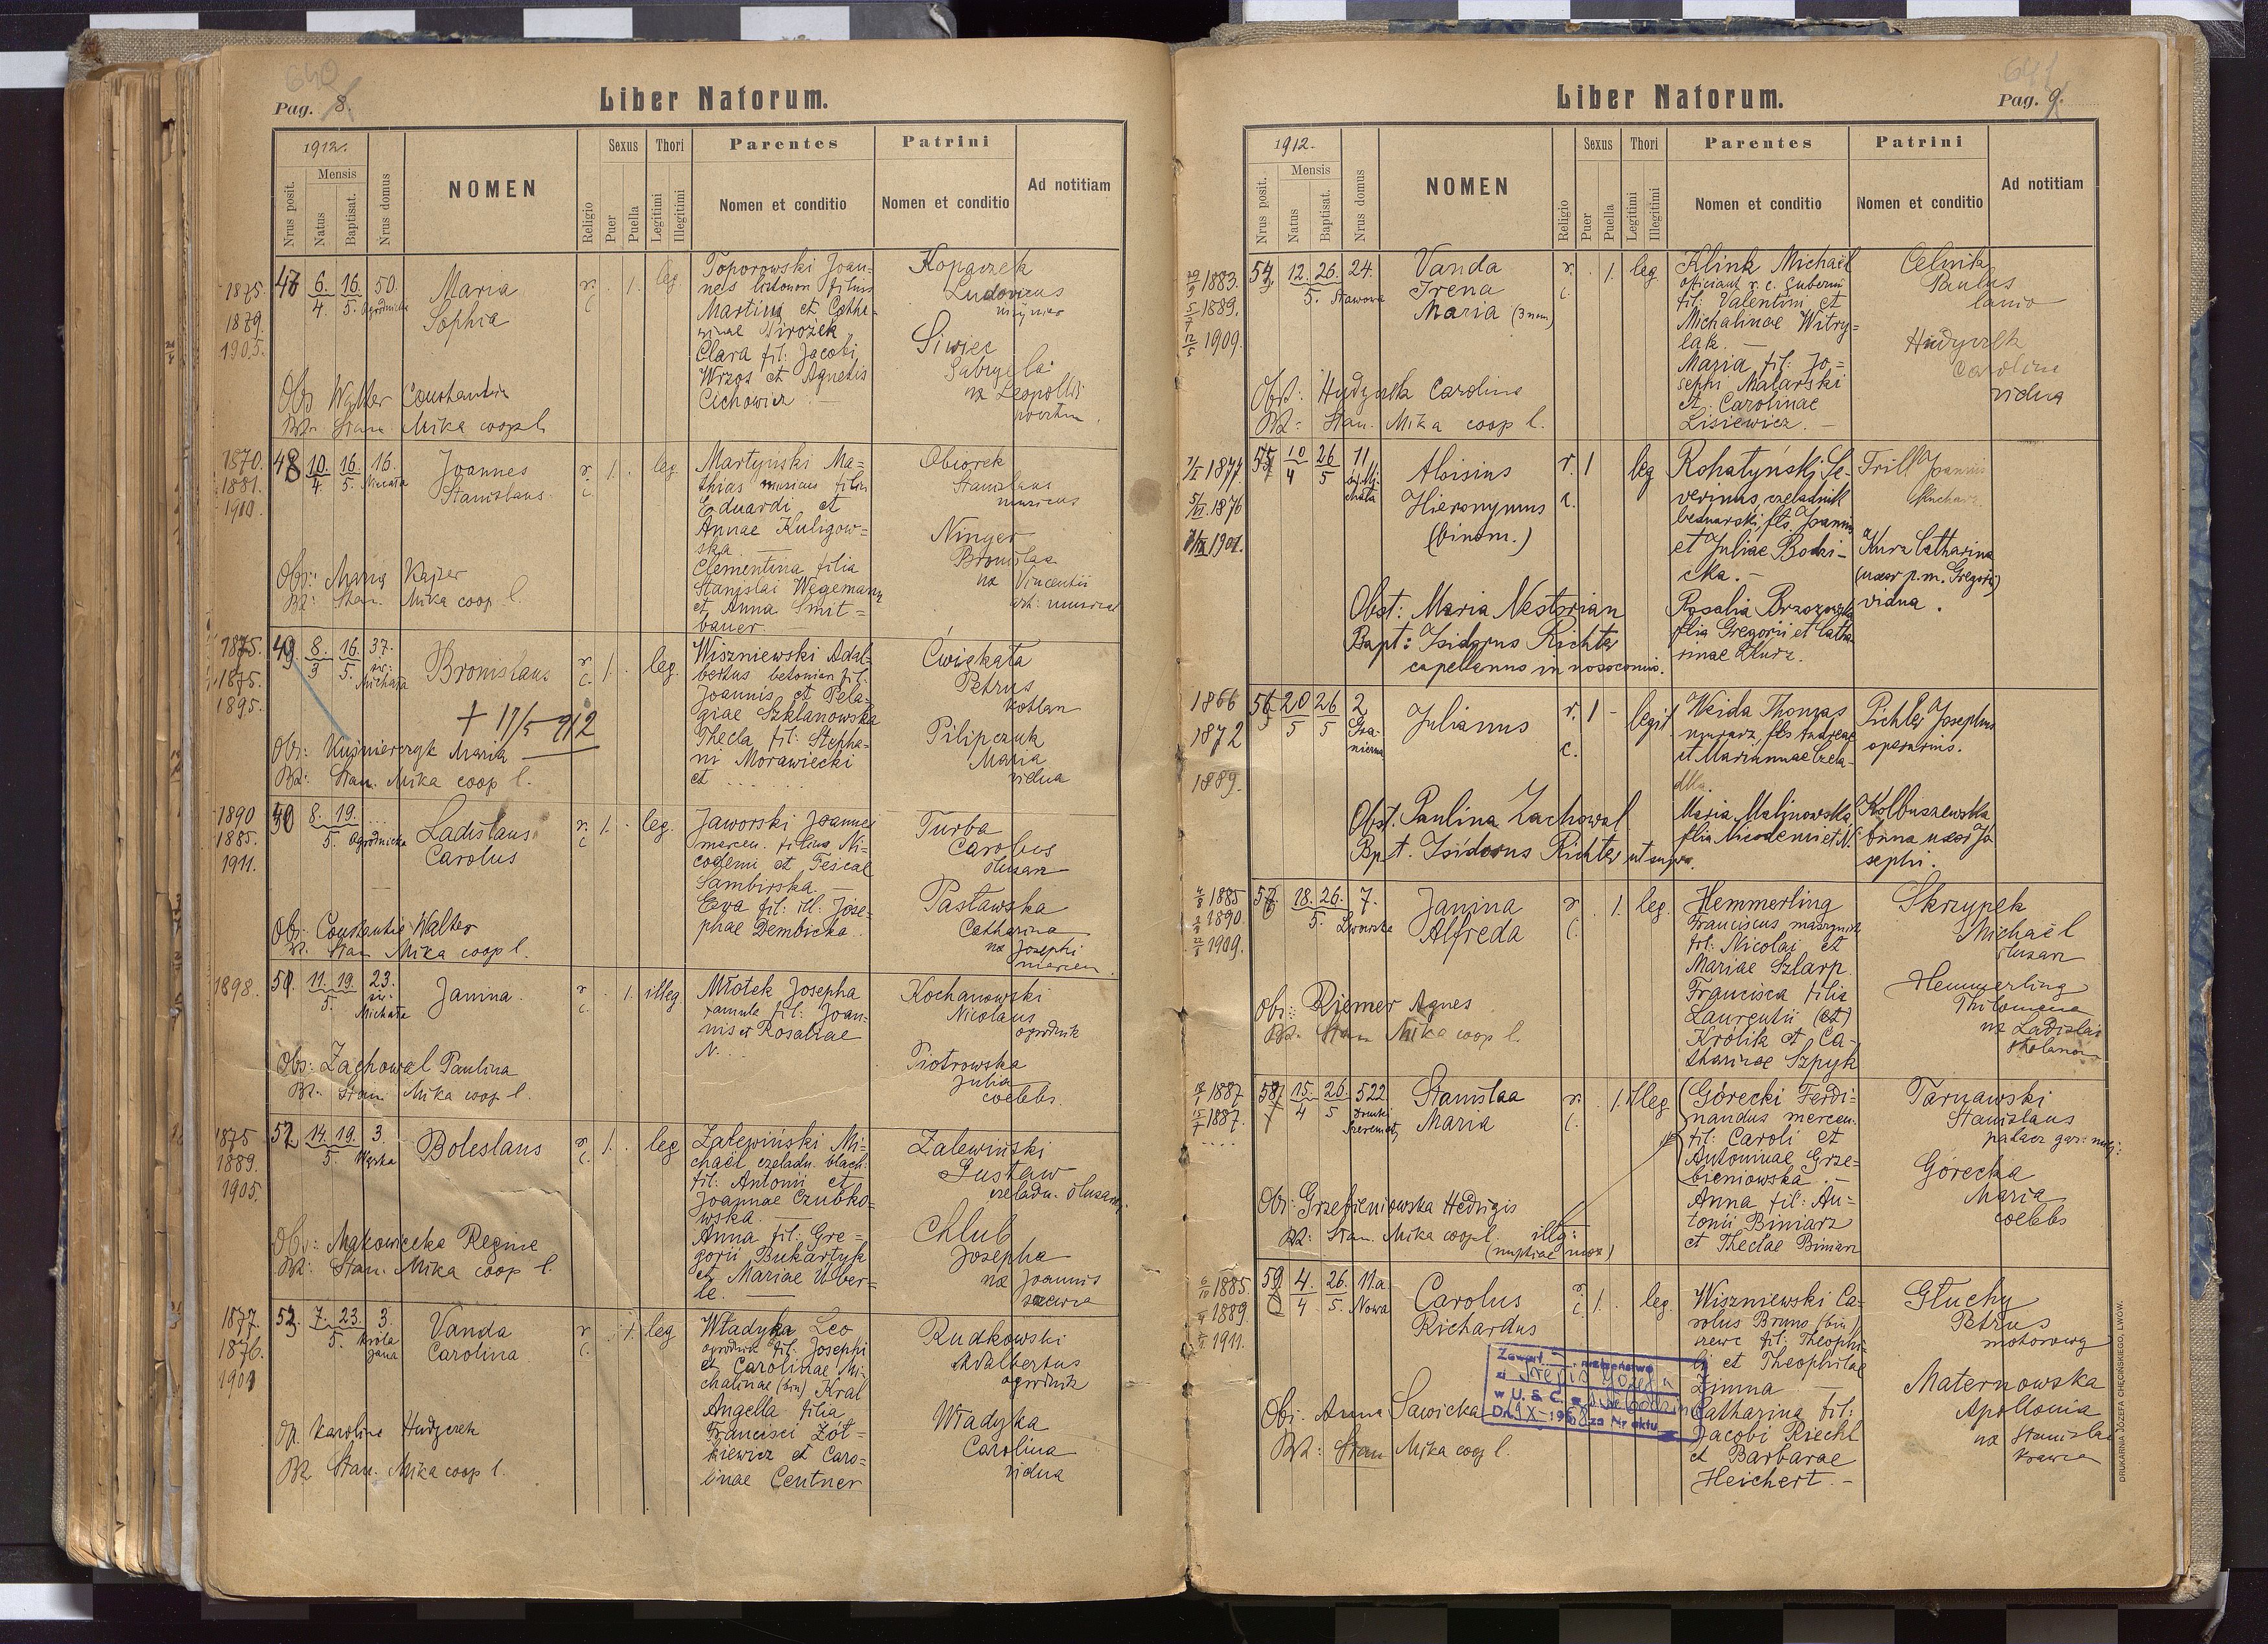 640
Pag. 8.
Liber Natorum.
1912.
Mensis
Nrus posit.
Natus
Baptisat.
Nrus domus
NOMEN
Religio
Sexus
Puer
Puella
Thori
Legitimi
Illegitimi
Parentes
Nomen et conditio
Patrini
Nomen et conditio
Ad notitiam
1875.
1879.
1905.
47 6. 16. 50.
4. 5. Ogrodnicka
Maria
Sophia
r. c. 1. leg
Toporowski Joan-
nes filius
Martini et Catha-
rinae Mrożek
Clara fil: Jacobi
Wrzos et Agnetis
Cichowicz —
Kopaczek
Ludovicus
Siwiec
Gabryela
ux Leopoldi
Obs Walter Constantia
Bz. Stan. Mika coop l.
1870.
1881.
1900.
48 10. 16. 16.
4. 5.
Joannes
Stanislaus
r. c. 1. leg
Martyński Ma-
thias musicus filius
Eduardi et
Annae Kuligow-
ska. —
Clementina filia
Stanislai Wegemann
et Anna Smit-
bauer.
Obiorek
Stanislaus
musicus
Ninger
Bronislaa
ux Vincentii
Obs: Maria Kajzer
Bz: Stan. Mika coop l
1875.
1875.
1895.
49 8. 16. 37.
3 5. św. Michała
Bronislaus
+ 17/5 912
r. c. 1. leg.
Wiszniewski Adal-
bertus betoniar fil.
Joannis et Pela-
giae Szklanowska
Thecla fil: Stepha-
ni Morawiecki
et . . . . .
Ćwiękała
Petrus
kotlarz
Pilipczuk
Maria
vidua
Obs: Kuśnierczyk Maria
Bz: Stan. Mika coop l.
1890
1885.
1911.
50 8. 19. ...
5. Ogrodnicka
Ladislaus
Carolus
r. c 1. leg.
Jaworski Joannes
mercen. filius Ni-
codemi et Tesicae
Sambirska. —
Eva fil: ill: Jose-
phae Dembicka.
Turba
Carolus
ślusarz
Pasławska
Catharina
ux Josephi
mercen.
Obs: Constantia Walter
Bz. Stan Mika coop l.
1898.
51. 11. 19. 23.
5. św. Michała
Janina.
r. c. 1. illeg
Młotek Josepha
famula fil: Joan-
nis et Rosaliae
N...
Kochanowski
Nicolaus
ogrodnik
Piotrowska
Julia
coelebs.
Obs: Zachowal Paulina
Bz. Stan. Mika coop l.
1875
1889.
1905.
52 14. 19. 3.
5. Wąska
Boleslaus
r. c. 1. leg
Zalewiński Mi-
chaël czeladn. blach.
fil: Antonii et
Joannae Czubko-
wska.
Anna fil: Gre-
gorii Bukartyk
et Mariae Uber-
le. —
Zalewiński
Gustaw
czeladn. ślusarz
Chlub
Josepha
ux Joannis
szewca
Obs: Makowiecka Regina
Bz: Stan. Mika coop l.
1877.
1876.
1901
53. 7. 23. 3.
5. króla Jana
Vanda
Carolina
r c. 1. leg
Władyka Leo
ogrodnik fil. Josephi
et Carolinae Mi-
chalinae (bin) Kral
Angella filia
Francisci Żół-
kiewicz et Caro-
linae Centner
Rudkowski
Adalbertus
ogrodnik
Władyka
Carolina
vidua
Op. Karolina Hudyczek
Bz Stan. Mika coop l.
641
Pag. 9.
Liber Natorum.
1912.
Mensis
Nrus posit.
Natus
Baptisat.
Nrus domus
NOMEN
Religio
Sexus
Puer
Puella
Thori
Legitimi
Illegitimi
Parentes
Nomen et conditio
Patrini
Nomen et conditio
Ad notitiam
1883.
1889.
1909.
54 12. 26. 24.
5. Stawowa
Vanda
Irena
Maria (3 nom)
r. c. 1. leg
Klink Michaël
officiant r. c. Gubern
fil: Valentini et
Michalinae Witry-
lak. —
Maria fil: Jo-
sephi Malarski
et Carolinae
Lisiewicz. —
Celnik
Paulus
lanio
Hudyczek
Carolina
vidua
Obst: Hudyczek Carolina
Bz: Stan. Mika coop l.
1877
1876
1901.
55 10 26 11
4 5 św. Michała
Aloisius
Hieronymus
(binom.)
r. c. 1 leg
Rohatyński Se-
verinus, czeladnik
bednarski, fls Joannis
et Juliae Bodzi-
cka. —
Rosalia Brzozowska
filia Gregorii et Catha-
rinae Kurz.
Trill Joannes
kucharz
Kurz Catharina
(uxor p. m. Gregorii)
vidua.
Obst: Maria Nestorian
Bapt: Isidorus Richter
capellanus in nosocomio.
1866
1872
1889.
56 20 26 2
5 5 Gra-
niczna
Julianus
r. c. 1 - legit.
Weida Thomas
murarz, fls Andreae
et Mariannae Czela-
dka.
Maria Malinowska
filia Nicodemi et N.
Pichler Josephus
operarius.
Kolbuszewska
Anna uxor Jo
sephi.
Obst. Paulina Zachowal
Bpt. Isidorus Richter ut supra.
1885
1890.
1909.
57 18. 26. 7.
5. Lwowska
Janina
Alfreda
r c. 1. leg.
Hemmerling
Franciscus maszynista
fil: Nicolai et
Mariae Szlarp.
Francisca filia
Laurentii (et)
Krolik et Ca-
tharinae Szpyk
Skrzypek
Michaël
ślusarz
Hemmerling
Philomena
ux Ladislai
stolarza
Obs: Riemer Agnes
Bz. Stan Mika coop l.
1887
1887.
.....
58 15. 26. 522
4 5
Stanislaa
Maria
r. c. 1. Illeg
Górecki Ferdi-
nandus mercen.
fil: Caroli et
Antoninae Grze-
bieniowska. —
Anna fil: An-
tonii Biniarz
et Theclae Biniarz
Tarnawski
Stanislaus
palacz
Górecka
Maria
coelebs
Obs: Grzebieniowska Hedvigis
Bz: Stan. Mika coop l. illg:
(nuptiae mox)
1885.
1889.
1911.
59 4. 26. 11.a
4 5. Nowa
Carolus
Richardus
r. c. 1. leg.
Wiszniewski Ca-
rolus Bruno (bin)
szewc fil: Theophi-
li et Theophilae
Zimna —
Catharina fil:
Jacobi Riechl
et Barbarae
Heichert. —
Głuchy
Petrus
motorowy
Maternowska
Apollonia
ux Stanislai
krawca
Zawarł małżeństwo
w U. S. C.
za Nr aktu
Obs. Anna Sawicka
Bz: Stan Mika coop l.
DRUKARNIA JÓZEFA CHĘCIŃSKIEGO, LWÓW.